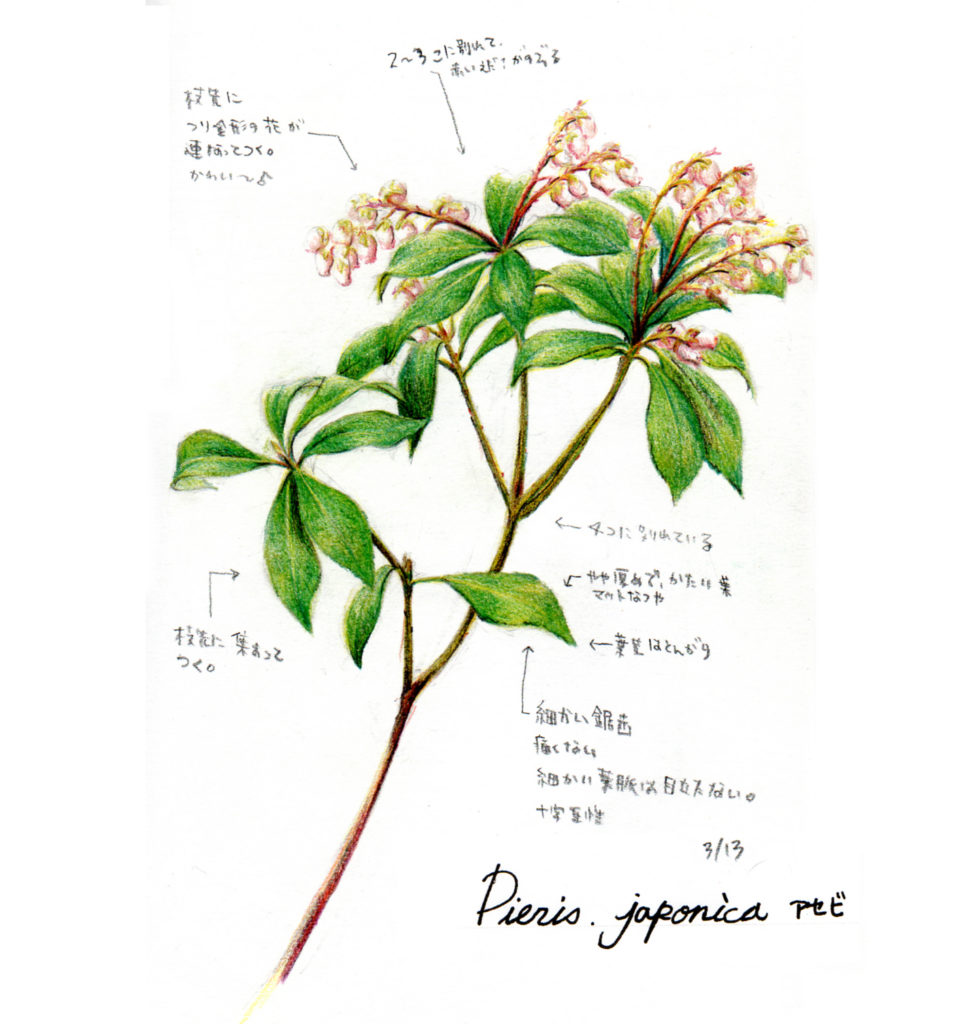 2〜3こに別れて、
赤いえだ！がすずる
枝先に
つり金形の花が
連なってつく。
かわい〜♪
←4つに別れている
やや厚めで、かたい葉
マットなつや
←葉
枝先に集まって
つく。
細かい鋸歯
痛くない。
細かい葉脈は目立たない。
十字互性
3/13
Pieris. japonica アセビ